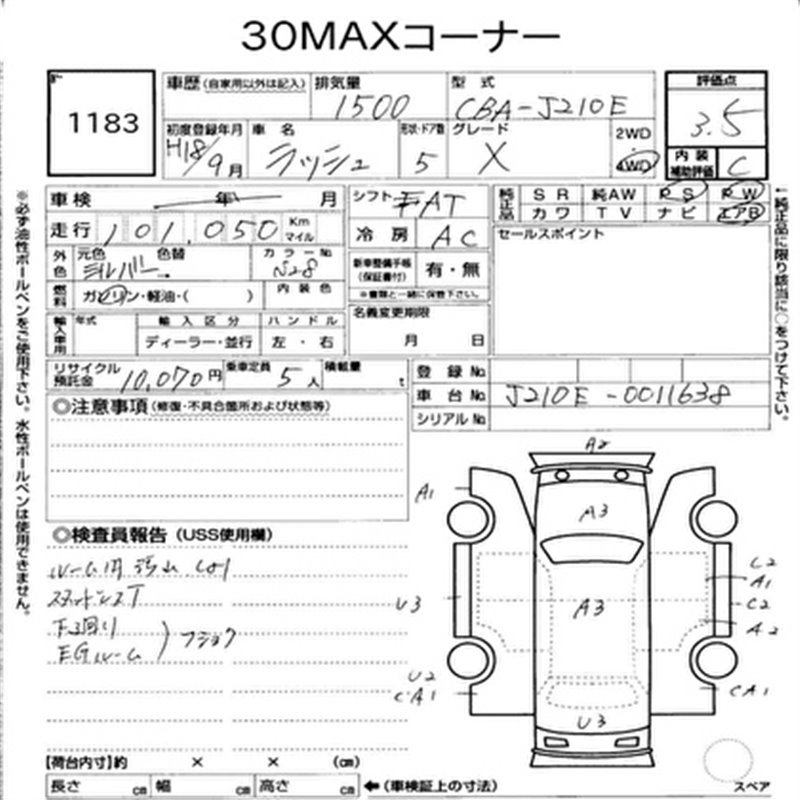 30MAXコーナー
1183
車歴 (自家用以外は記入)
排気量
1500
型式
CBA-J210E
評価点
3.5
初度登録年月
H18/9月
車名
ラッシュ
形状・ドア数
5
グレード
X
2WD
4WD
内装
補助評価
C
車検 年 月
走行 101,050 Km
マイル
シフト FAT
冷房 AC
純正品
SR 純AW PS PW
カワ TV ナビ エアB
セールスポイント
外色
元色 色替
シルバー
カラーNo
N28
新車整備手帳
(保証書付)
有・無
※書類と一緒に保管下さい。
燃料
ガソリン・軽油・( )
内装色
名義変更期限
月 日
輸入車用
年式
輸入区分
ディーラー・並行
ハンドル
左・右
リサイクル
預託金
10,070円
乗車定員
5人
積載量
t
登録No
車台No J210E-0011638
シリアルNo
◎注意事項 (修復・不具合箇所および状態等)
◎検査員報告 (USS使用欄)
ルーム内
下廻り
EGルーム
A2
A1
A3
A3
U3
U2
CA1
U3
C2
A1
C2
A2
CA1
スペア
【荷台内寸】約 × × (cm)
長さ cm 幅 cm 高さ cm
←(車検証上の寸法)
※必ず油性ボールペンをご使用下さい。水性ボールペンは使用できません。
←純正品に限り該当に○をつけて下さい。